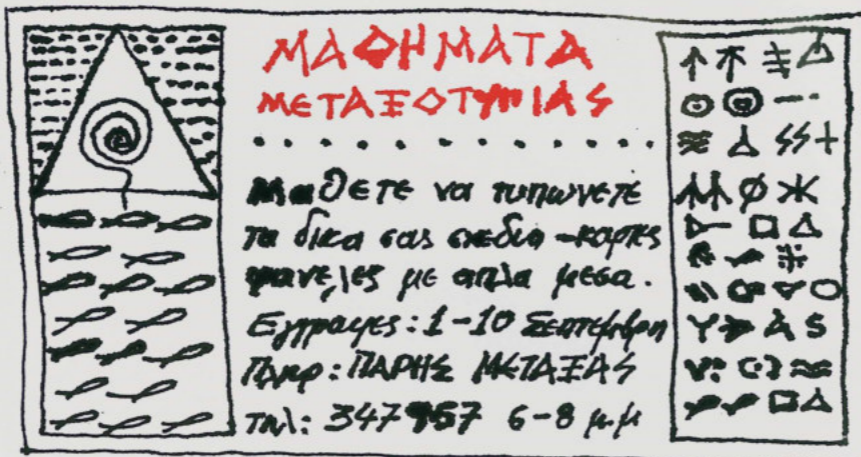 ΜΑΘΗΜΑΤΑ
ΜΕΤΑΞΟΤΥΠΙΑΣ
Μαθετε να τυπωνετε
τα δικα σας σχεδια - καρτες
φανελες με απλα μεσα.
Εγγραφες: 1-10 Σεπτεμβρη
Πληρ: ΠΑΡΗΣ ΜΕΤΑΞΑΣ
τηλ: 347957 6-8 μ.μ